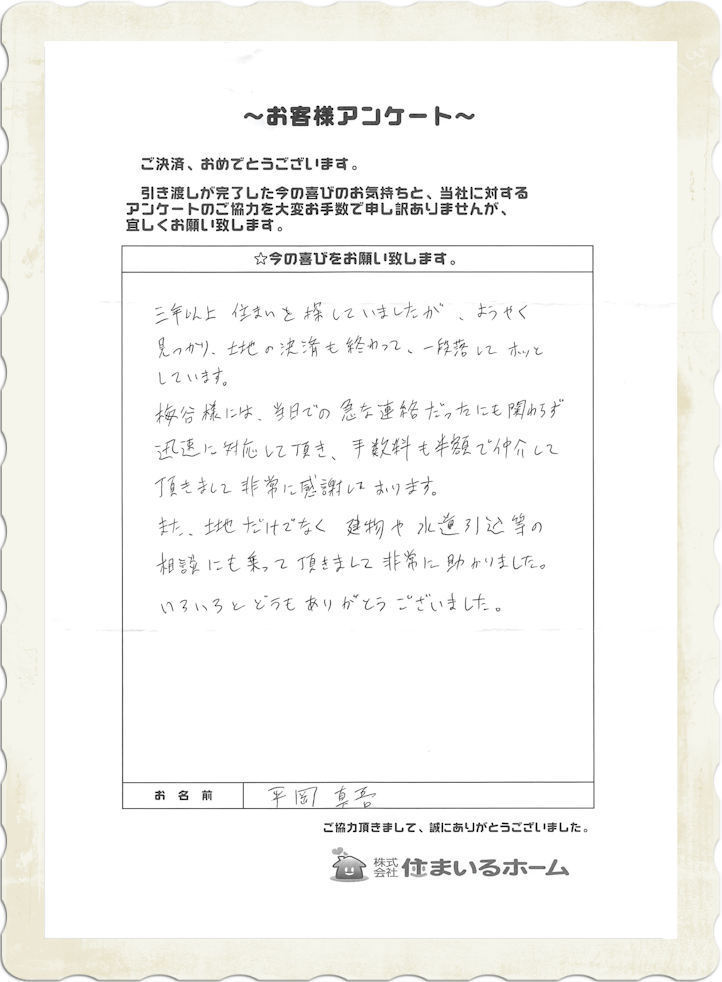 ～お客様アンケート～
ご決済、おめでとうございます。
引き渡しが完了した今の喜びのお気持ちと、当社に対する
アンケートのご協力を大変お手数で申し訳ありませんが、
宜しくお願い致します。
☆今の喜びをお願い致します。
三年以上 住まいを探していましたが、ようやく
見つかり、土地の決済も終わって、一段落してホッと
しています。
梅谷様には、当日での急な連絡だったにも関わらず
迅速に対応して頂き、手数料も半額で仲介して
頂きまして非常に感謝しております。
また、土地だけでなく 建物や水道引込等の
相談にも乗って頂きまして非常に助かりました。
いろいろとどうもありがとうございました。
お名前 平岡 真吾
ご協力頂きまして、誠にありがとうございました。
株式会社 住まいるホーム